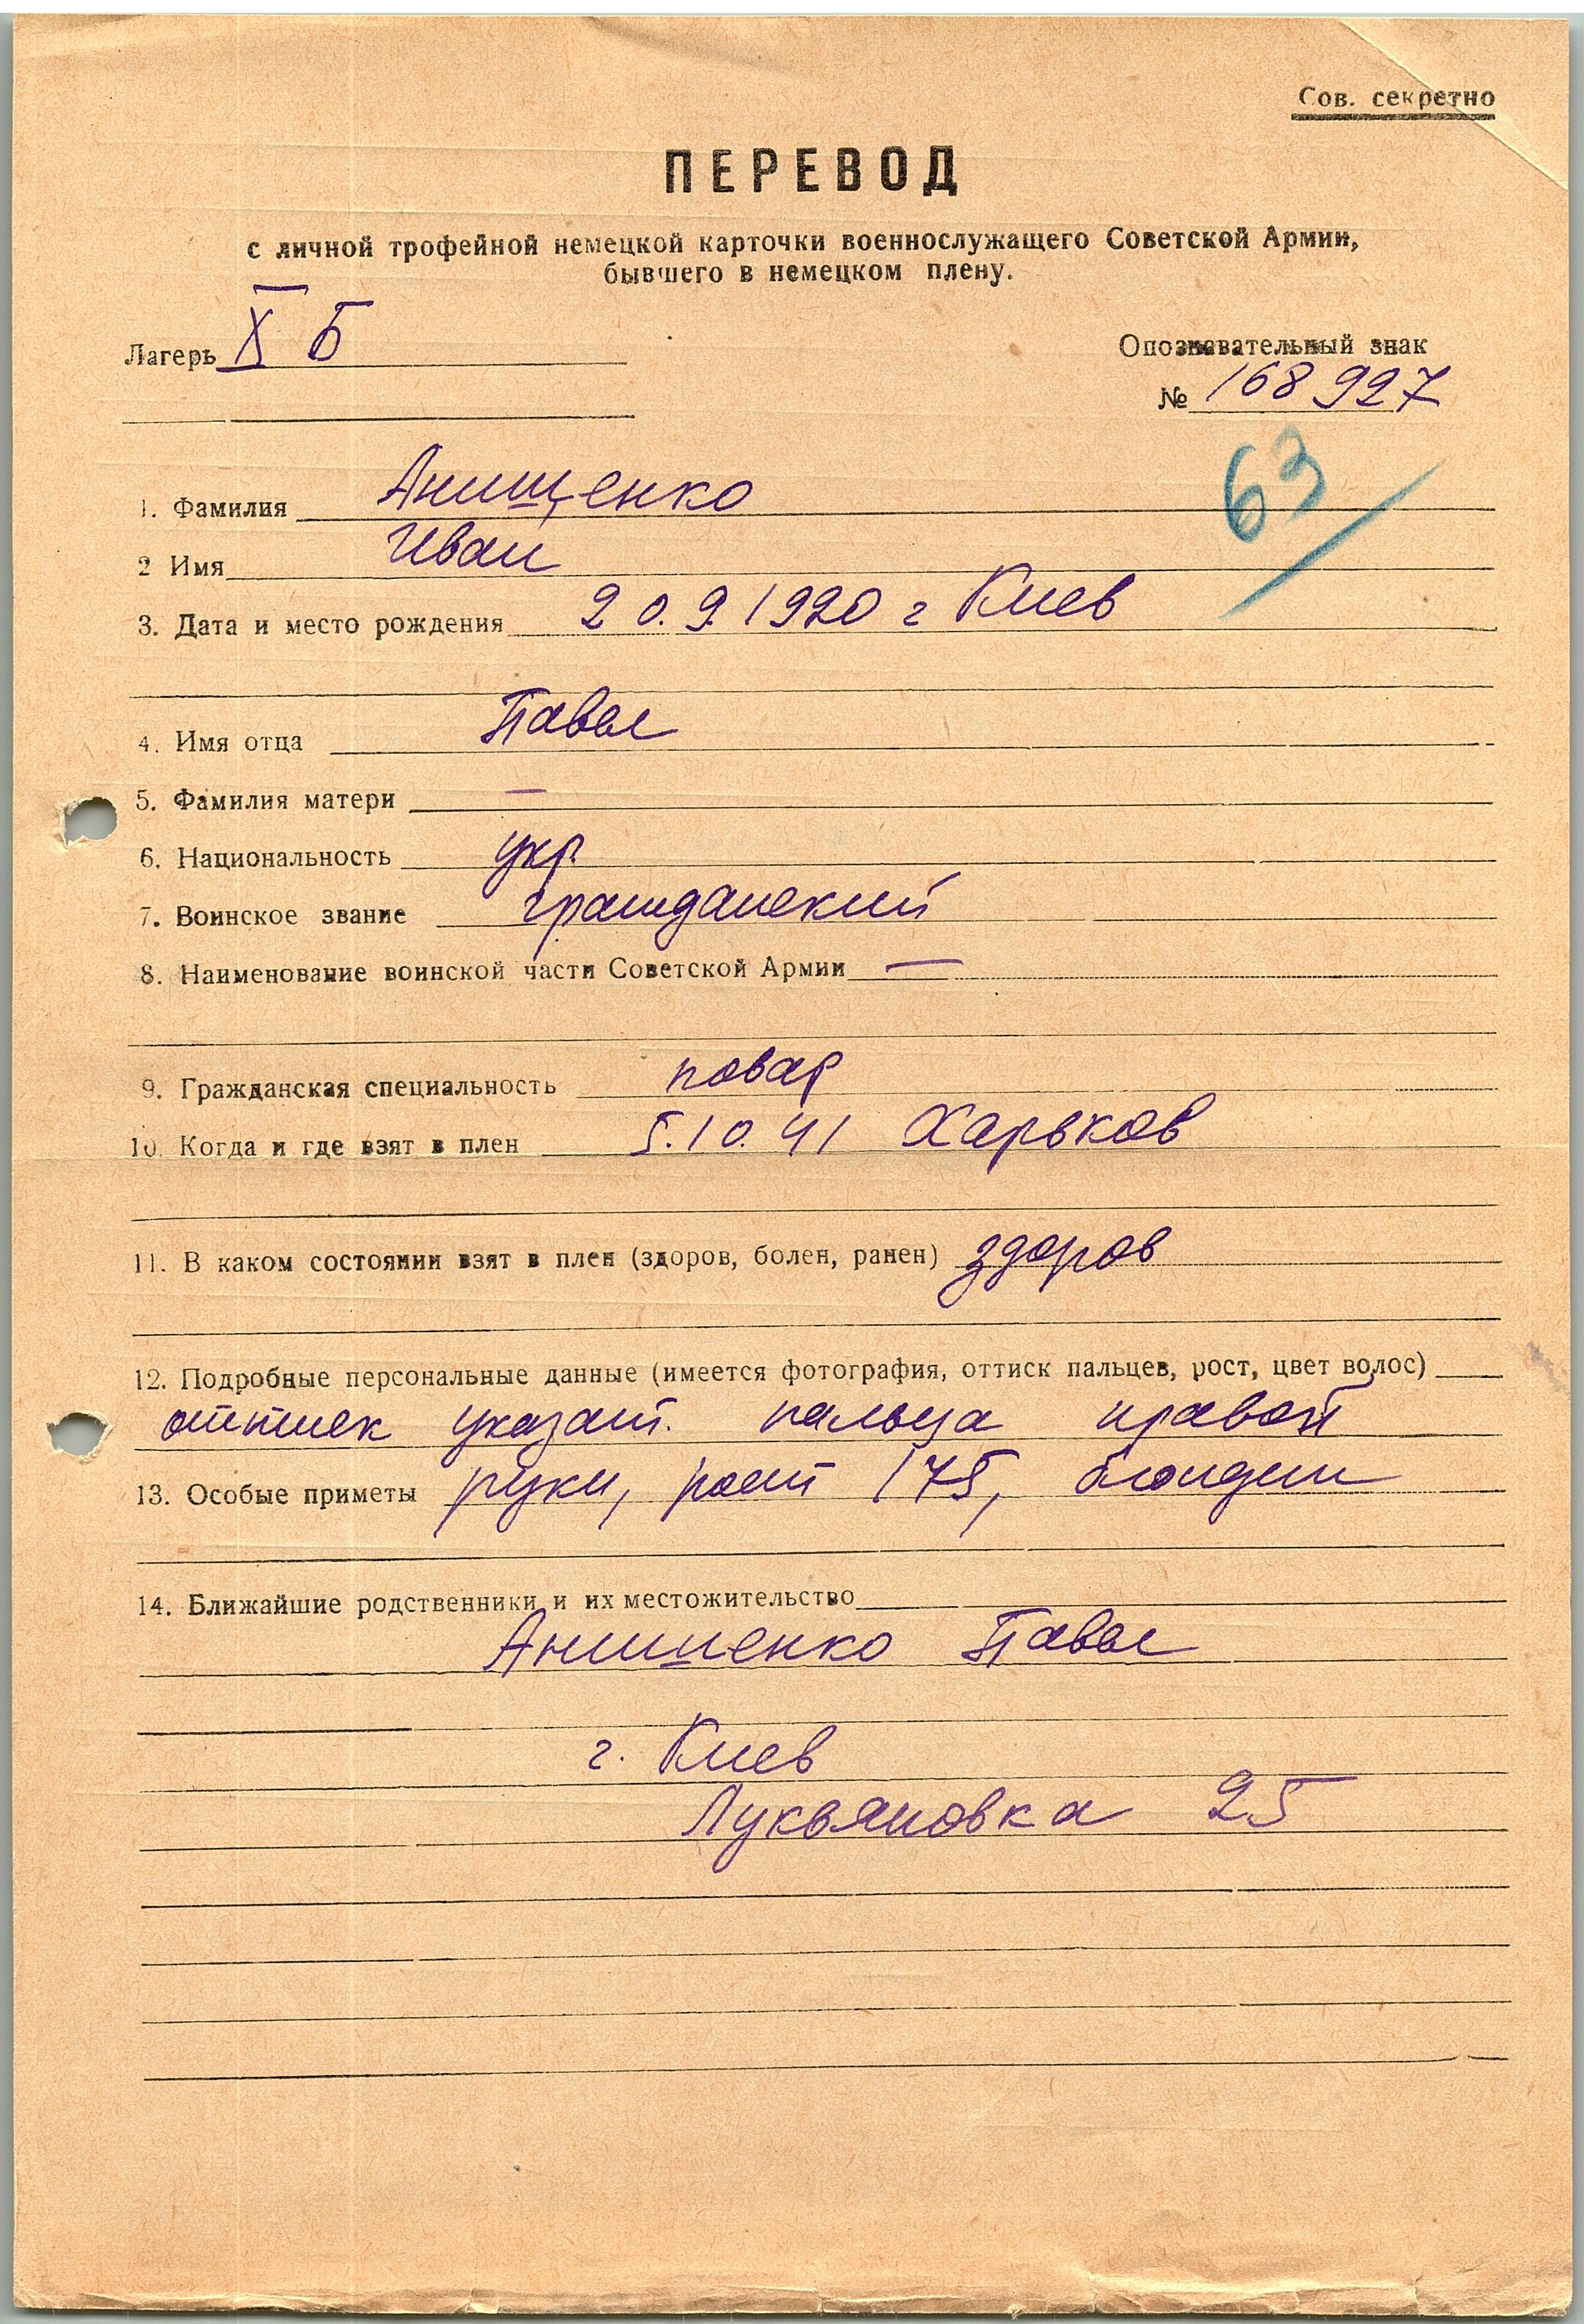 Сов. секретно
ПЕРЕВОД
с личной трофейной немецкой карточки военнослужащего Советской Армии,
бывшего в немецком плену.
Лагерь X Б
Опознавательный знак
№ 168 927
63
1. Фамилия Анищенко
2 Имя Иван
3. Дата и место рождения 20.9.1920 г Киев
4. Имя отца Павел
5. Фамилия матери —
6. Национальность укр.
7. Воинское звание гражданский
8. Наименование воинской части Советской Армии —
9. Гражданская специальность повар
10. Когда и где взят в плен 5.10.41 Харьков
11. В каком состоянии взят в плен (здоров, болен, ранен) здоров
12. Подробные персональные данные (имеется фотография, оттиск пальцев, рост, цвет волос)
оттиск указат. пальца правой
13. Особые приметы руки, рост 175, блондин
14. Ближайшие родственники и их местожительство
Анишенко Павел
г. Киев
Лукьяновка 25